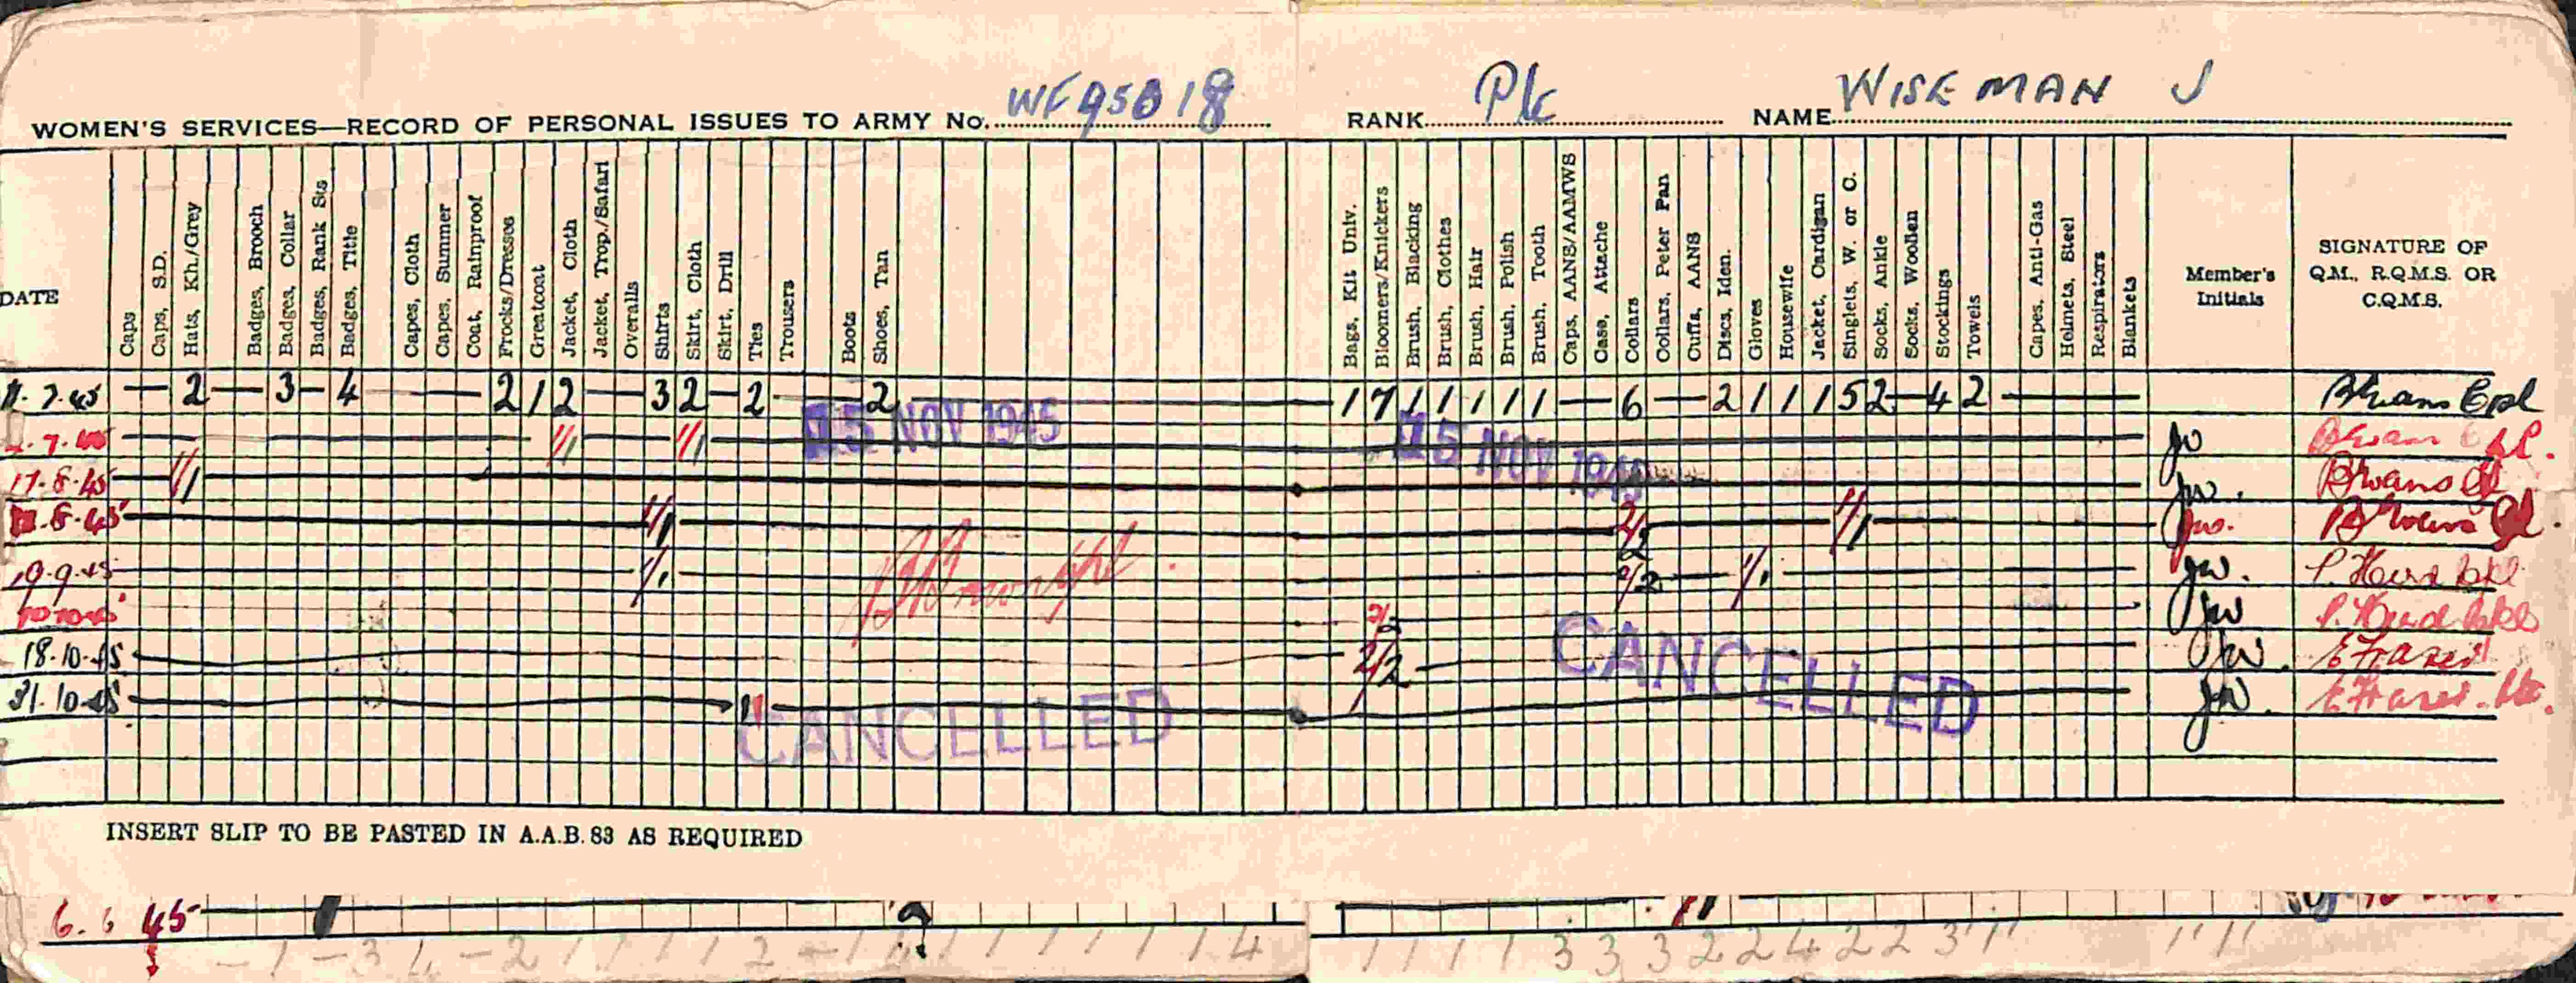 WOMEN'S SERVICES—RECORD OF PERSONAL ISSUES TO ARMY No. RANK Pte NAME WISEMAN J
DATE
Caps
Caps, S.D.
Hats, Kh/Grey
Badges, Brooch
Badges, Collar
Badges, Rank Sts
Badges, Title
Capes, Cloth
Capes, Summer
Coat, Rainproof
Frocks/Dresses
Greatcoat
Jacket, Cloth
Jacket, Trop./Safari
Overalls
Shirts
Skirt, Cloth
Skirt, Drill
Ties
Trousers
Boots
Shoes, Tan
Bags, Kit Univ.
Bloomers/Knickers
Brush, Blacking
Brush, Clothes
Brush, Hair
Brush, Polish
Brush, Tooth
Caps, AANS/AAMWS
Case, Attache
Collars
Collars, Peter Pan
Cuffs, AANS
Discs, Iden.
Gloves
Housewife
Jacket, Cardigan
Singlets, W. or C.
Socks, Ankle
Socks, Woollen
Stockings
Towels
Capes, Anti-Gas
Helmets, Steel
Respirators
Blankets
Member's Initials
SIGNATURE OF Q.M., R.Q.M.S. OR C.Q.M.S.
— 2 — 3 — 4 — 2 1 2 — 3 2 — 2 — 2 — 1 7 1 1 1 1 1 — 6 — 2 1 1 1 5 2 — 4 2 —
1/1 1/1
5 NOV 1945
5 NOV 1945
17.8.45 1/1 JW.
8.45 1/1 2/2 1/1 JW.
19.9.45 1/1 2/2 1/1 JW. P. Hurd
2/2 JW P. Hurd
18.10.45 2/2 JW. E Fraser
31.10.45 JW. E Fraser. Pte.
CANCELLED
CANCELLED
INSERT SLIP TO BE PASTED IN A.A.B. 83 AS REQUIRED
45